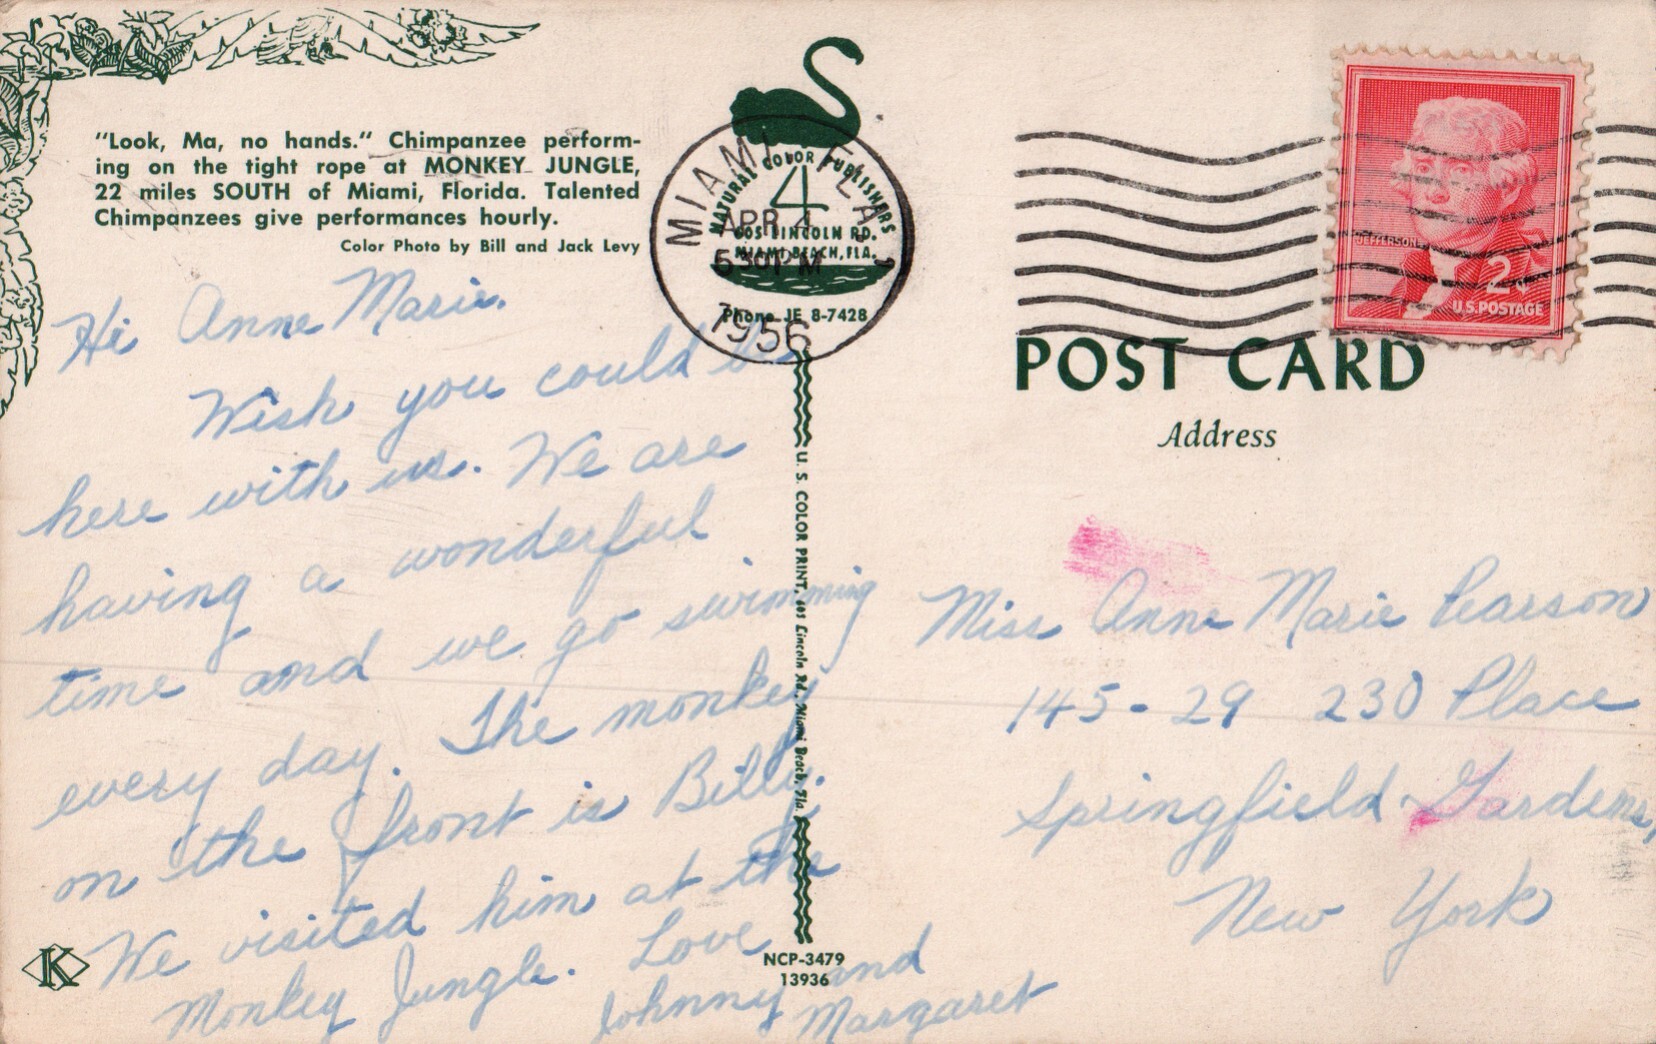 "Look, Ma, no hands." Chimpanzee perform-
ing on the tight rope at MONKEY JUNGLE,
22 miles SOUTH of Miami, Florida. Talented
Chimpanzees give performances hourly.
Color Photo by Bill and Jack Levy
Hi Anne Marie.
Wish you could be
here with us. We are
having a wonderful
time and we go swimming
every day. The monkey
on the front is Billy.
We visited him at the
Monkey Jungle. Love
Johnny and
Margaret
K
NATURAL COLOR PUBLISHERS
605 LINCOLN RD.
MIAMI BEACH, FLA.
Phone JE 8-7428
MIAMI, FLA.
4
APR 4
630 PM
1956
U. S. COLOR PRINT, 605 Lincoln Rd., Miami Beach, Fla.
NCP-3479
13936
JEFFERSON
2¢
U.S. POSTAGE
POST CARD
Address
Miss Anne Marie Pearson
145-29 230 Place
Springfield Gardens,
New York